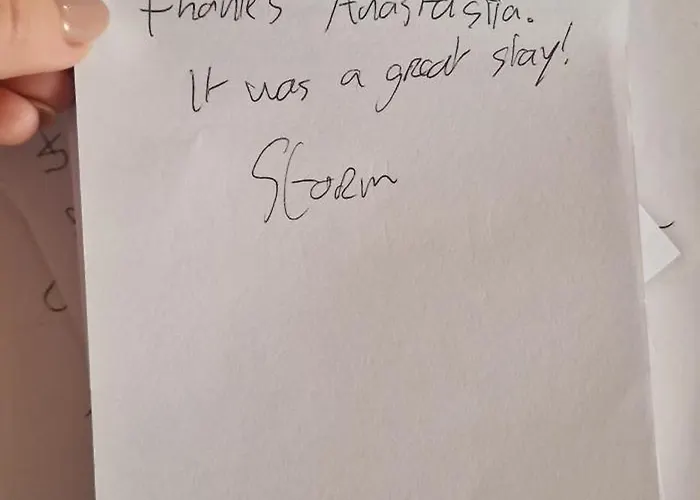 Thanks Anastasiia.
It was a great stay!
Storm